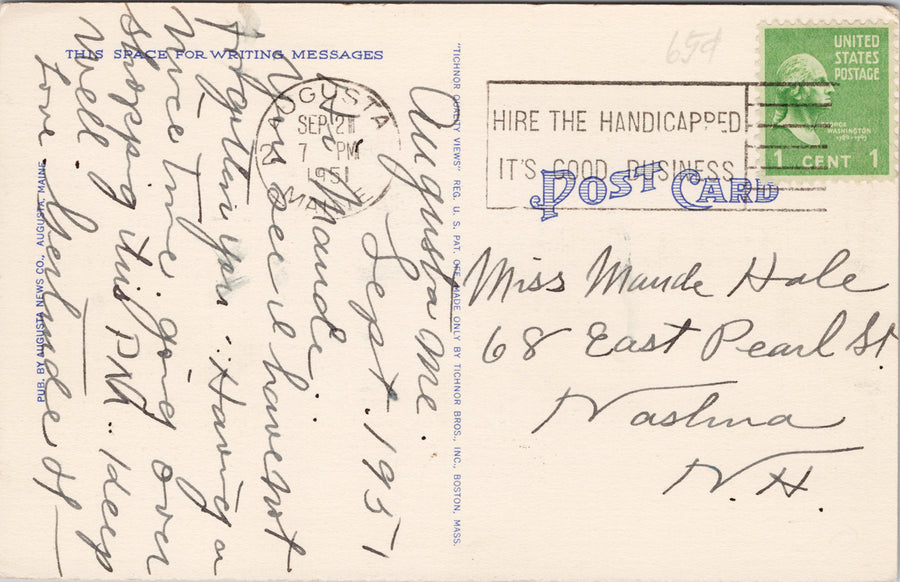 THIS SPACE FOR WRITING MESSAGES
Augusta Me.
Sept. 1951
Maude.
You see I have not
forgotten you. Having a
nice time going over
shopping this P.M. I deep
well.
Love. Gertrude H
PUB. BY AUGUSTA NEWS CO., AUGUSTA, MAINE
"TICHNOR QUALITY VIEWS" REG. U. S. PAT. OFF. MADE ONLY BY TICHNOR BROS., INC., BOSTON, MASS.
65¢
AUGUSTA
SEP 21
7 PM
1951
MAINE
2
HIRE THE HANDICAPPED
IT'S GOOD BUSINESS
UNITED
STATES
POSTAGE
GEORGE
WASHINGTON
1789-1797
1 CENT 1
POST CARD
Miss Maude Hale
68 East Pearl St
Nashua
N.H